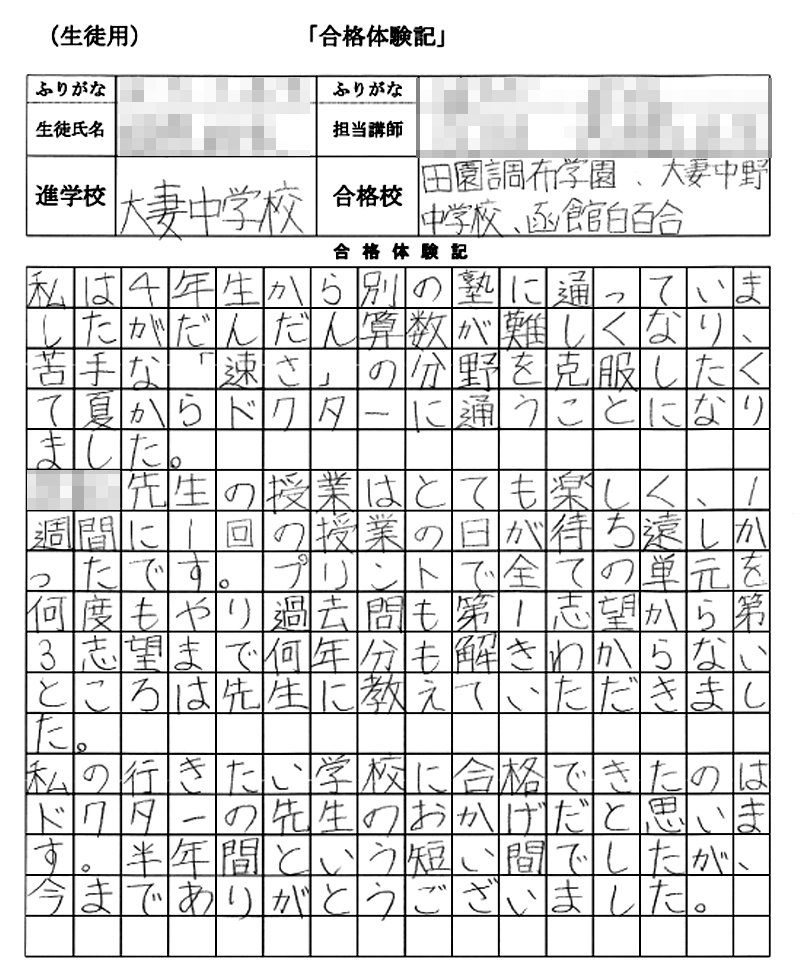 （生徒用）　「合格体験記」
ふりがな　ふりがな
生徒氏名　担当講師
進学校　大妻中学校　合格校　田園調布学園、大妻中野
中学校、函館白百合
合格体験記
私は4年生から別の塾に通っていま
したがだんだん算数が難しくなり、
苦手な「速さ」の分野を克服したく
て夏からドクターに通うことになり
ました。
先生の授業はとても楽しく、1
週間に1回の授業の日が待ち遠しか
ったです。プリントで全ての単元を
何度もやり過去問も第1志望から第
3志望まで何年分も解きわからない
ところは先生に教えていただきまし
た。
私の行きたい学校に合格できたのは
ドクターの先生のおかげだと思いま
す。半年間という短い間でしたが、
今までありがとうございました。